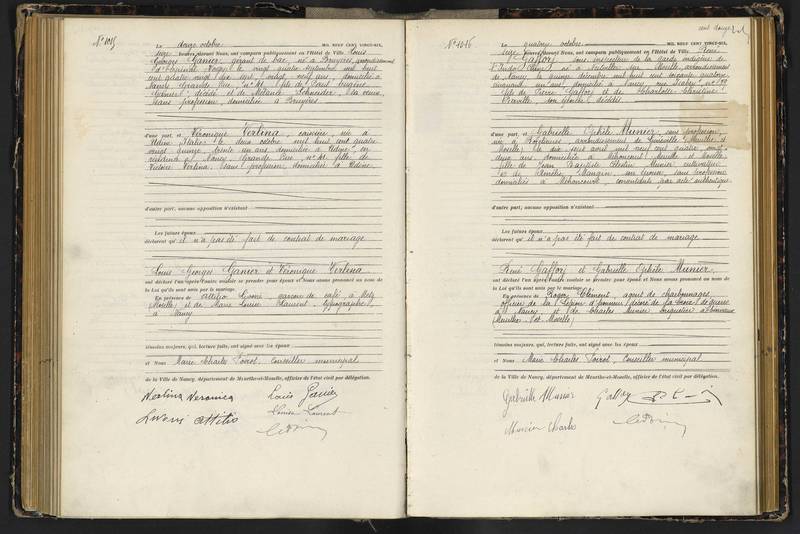 N° 1015
Le douze octobre MIL NEUF CENT VINGT-SIX,
seize heures devant Nous, ont comparu publiquement en l'Hôtel de Ville Louis
Georges Ganier, gérant de bar, né à Bruyères, arrondissement
d'Epinal Vosges le vingt quatre septembre mil huit
cent quatre vingt dix sept, vingt neuf ans, domicilié à
Nancy Grande Rue, n° 41, fils de Paul Eugène
Ganier, décédé et de Mélanie Schneider, sa veuve,
sans profession, domiciliée à Bruyères
d'une part, et Véronique Verlina, caissière, née à
Udine Italie le deux octobre mil huit cent quatre
vingt quinze, trente un ans, domiciliée à Udine en
résidence à Nancy, Grande Rue, n° 41, fille de
Victoire Verlina, sans profession, domiciliée à Udine
d'autre part, aucune opposition n'existant
Les futurs époux
déclarent qu'il n'a pas été fait de contrat de mariage
Louis Georges Ganier et Véronique Verlina
ont déclaré l'un après l'autre vouloir se prendre pour époux et Nous avons prononcé au nom de
la Loi qu'ils sont unis par le mariage.
En présence de Attilio garçon de café, à Metz
Moselle et de Marie Louise Laurent, typographe,
à Nancy
témoins majeurs, qui, lecture faite, ont signé avec les époux
et Nous Marie Charles Voirot, Conseiller municipal
de la Ville de Nancy, département de Meurthe-et-Moselle, officier de l'état civil par délégation.
Verlina Veronica Louis Ganier
Attilio Louise Laurent
N° 1016
cent douze
Le quatorze octobre MIL NEUF CENT VINGT-SIX,
seize heures devant Nous, ont comparu publiquement en l'Hôtel de Ville René
Gaffory, sous inspecteur de la Garde indigène de
l'Indo-Chine, né à sur Moselle, arrondissement
de Nancy le quinze décembre mil huit cent soixante quatorze,
cinquante un ans, domicilié à Nancy, rue
fils de Pierre Gaffory et de Charlotte Christine
son épouse décédés
d'une part, et Gabrielle Ophile Munier, sans profession,
née à arrondissement de Lunéville Meurthe et
Moselle, le dix sept avril mil neuf cent quatre, vingt
deux ans, domiciliée à Méhoncourt Meurthe et Moselle,
fille de Jean Baptiste Munier cultivateur
et de Mangin, son épouse, sans profession
domiciliés à Méhoncourt, consentants par acte authentique
d'autre part, aucune opposition n'existant
Les futurs époux
déclarent qu'il n'a pas été fait de contrat de mariage
René Gaffory et Gabrielle Ophile Munier,
ont déclaré l'un après l'autre vouloir se prendre pour époux et Nous avons prononcé au nom de
la Loi qu'ils sont unis par le mariage.
En présence de Roger Clément, agent de charbonnages,
officier de la Légion d'honneur, décoré de la Croix de guerre
à Nancy et de Charles Munier
Meurthe et Moselle
témoins majeurs, qui, lecture faite, ont signé avec les époux
et Nous Marie Charles Voirot, Conseiller municipal
de la Ville de Nancy, département de Meurthe-et-Moselle, officier de l'état civil par délégation.
Gabrielle Munier Gaffory
Munier Charles